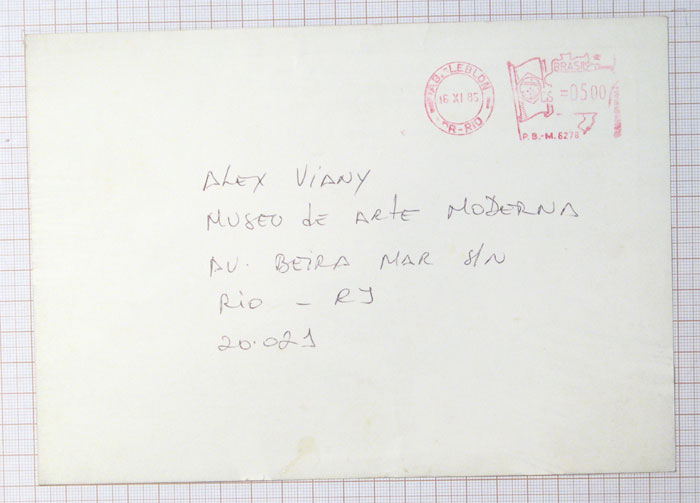 AG. - LEBLON
16 XI 85
DR-RIO
BRASIL
=0500
P.B.-M. 6278
ALEX VIANY
MUSEU de ARTE MODERNA
AV. BEIRA MAR S/N
RIO - RJ
20.021